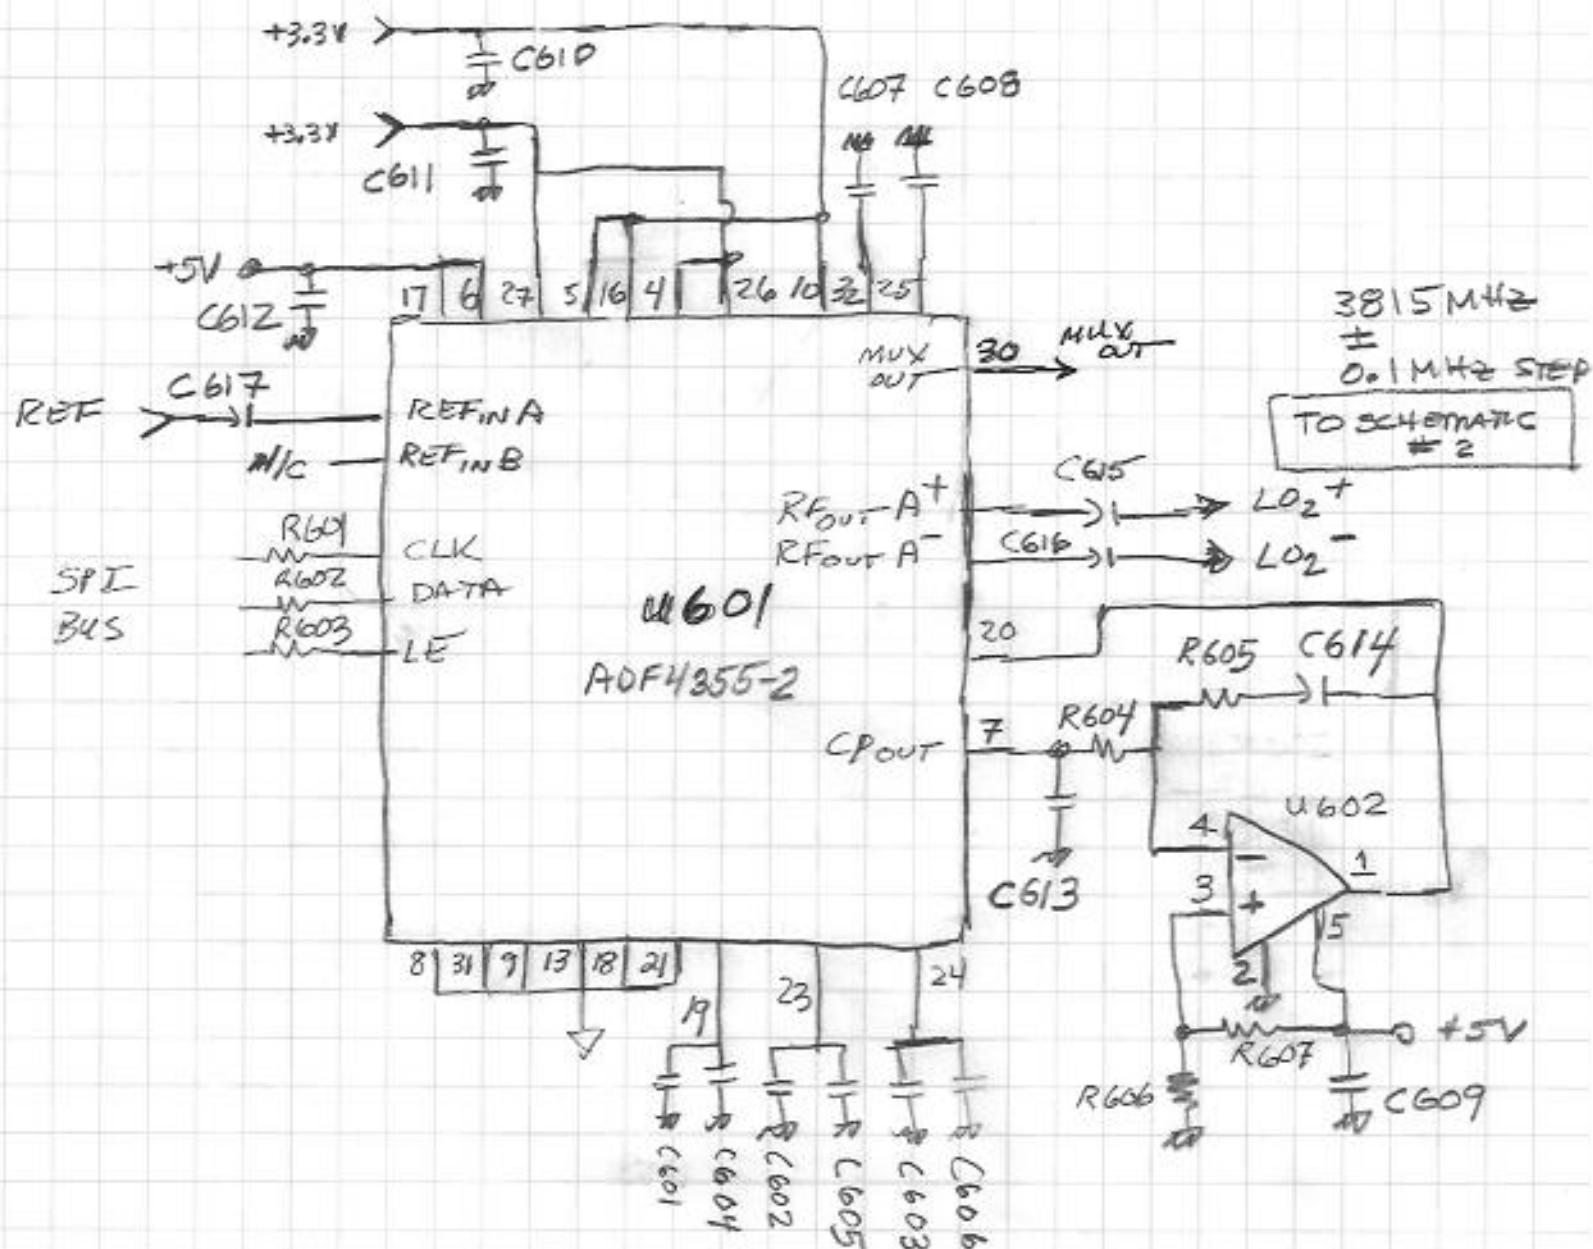 +3.3V
C610
C607 C608
+3.3V
C611
+5V
C612
17 6 27 5 16 4 26 10 32 25
3815 MHz
±
0.1 MHz STEP
TO SCHEMATIC
# 2
MUX
OUT
30
MUX
OUT
REF
C617
REFIN A
N/C
REFIN B
SPI
BUS
R601
CLK
R602
DATA
R603
LE
RFOUT A+
C615
LO2+
RFOUT A-
C616
LO2-
U601
ADF4355-2
20
R605 C614
CPOUT
7
R604
C613
U602
4
-
3
+
1
5
2
+5V
R607
R606
C609
8 31 9 13 18 21
19
23
24
C601
C604
C602
C605
C603
C606